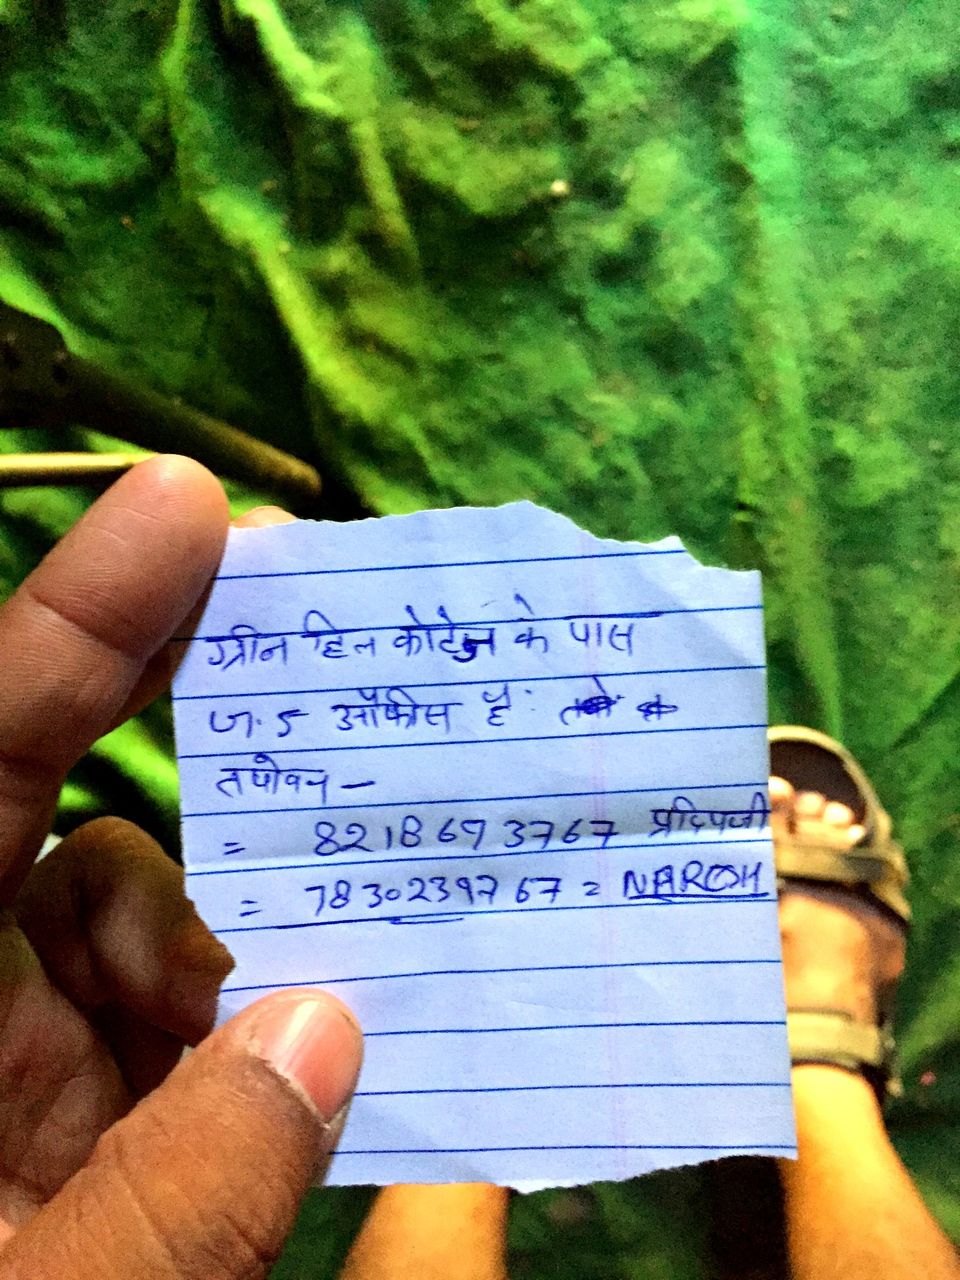 ग्रीन हिल कोटेज के पास
J. S ऑफीस है.
तपोवन –
= 8218693767 प्रदिपजी
= 7830239767 = NARCH